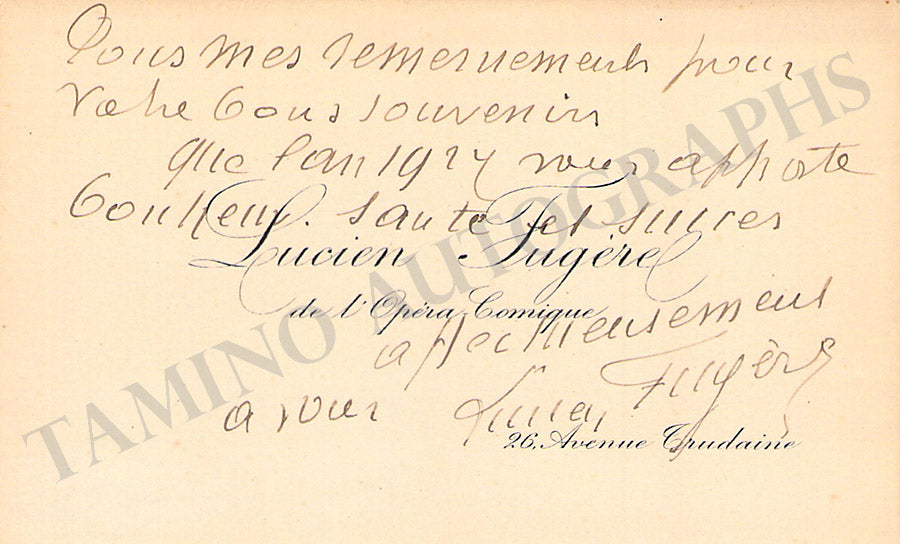 Tous mes remerciements pour
votre bons souvenirs
que l'an 1927 vous apporte
bonheur. santé et succes
Lucien Fugère
de l'Opéra Comique
affectueusement
a vous Lucien Fugère
26, Avenue Trudaine
TAMINO AUTOGRAPHS